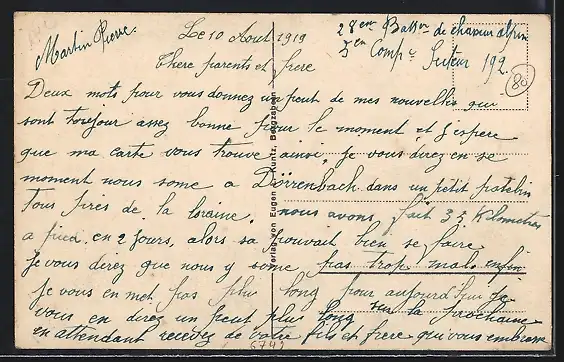 Martin Pierre.
Le 10 Aout 1919
28em Batlon de chaseur alpin
5em Compie Secteur 192.
80
Chere parents et frere
Deux mots pour vous donnez un peut de mes nouvelles qui
sont toujour assez bonne pour le moment et j'espere
que ma carte vous trouve ainsi, je vous direz en se
moment nous some a Dörrenbach dans un petit patelin
tous pres de la loraine, nous avons fait 35 Kilometres
a pied, en 2 jours, alors sa pouvait bien se faire
Je vous direz que nous y some pas trop mal enfin
Je vous en met pas plus long pour aujourd'hui je
vous en direz un peut plus long sur la prochaine
en attendant recevez de votre fils et frere qui vous embrasse
Verlag von Eugen Kuntz, Bergzabern
6749